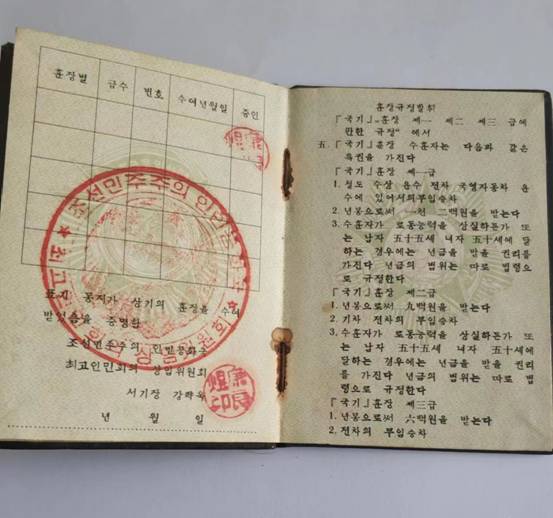 훈장별 급수 번호 수여년월일 증인
표기 동지가 상기의 훈장을 수여
받았음을 증명함
조선민주주의 인민공화국
최고인민회의 상임위원회
서기장 강량욱
년 월 일
훈장규정발취
「국기」훈장 제一 제二 제三 급에
관한 규정" 에서
五. 「국기」훈장 수훈자는 다음과 같은
특권을 가진다
「국기」훈장 제一급
1. 철도 수상 운수 전차 국영자동차 운
수에 있어서의 무임승차
2. 년봉으로써 一천 二백원을 받는다
3. 수훈자가 로동능력을 상실하든가 또
는 남자 五十五세 녀자 五十세에 달
하는 경우에는 년금을 받을 권리를
가진다 년금의 범위는 따로 법령으
로 규정한다
「국기」훈장 제二급
1. 년봉으로써 九백원을 받는다
2. 기차 전차의 무임승차
3. 수훈자가 로동능력을 상실하든가 또
는 남자 五十五세 녀자 五十세에
달하는 경우에는 년금을 받을 권리
를 가진다 년금의 범위는 따로 법
령으로 규정한다
「국기」훈장 제三급
1. 년봉으로써 六백원을 받는다
2. 전차의 무임승차